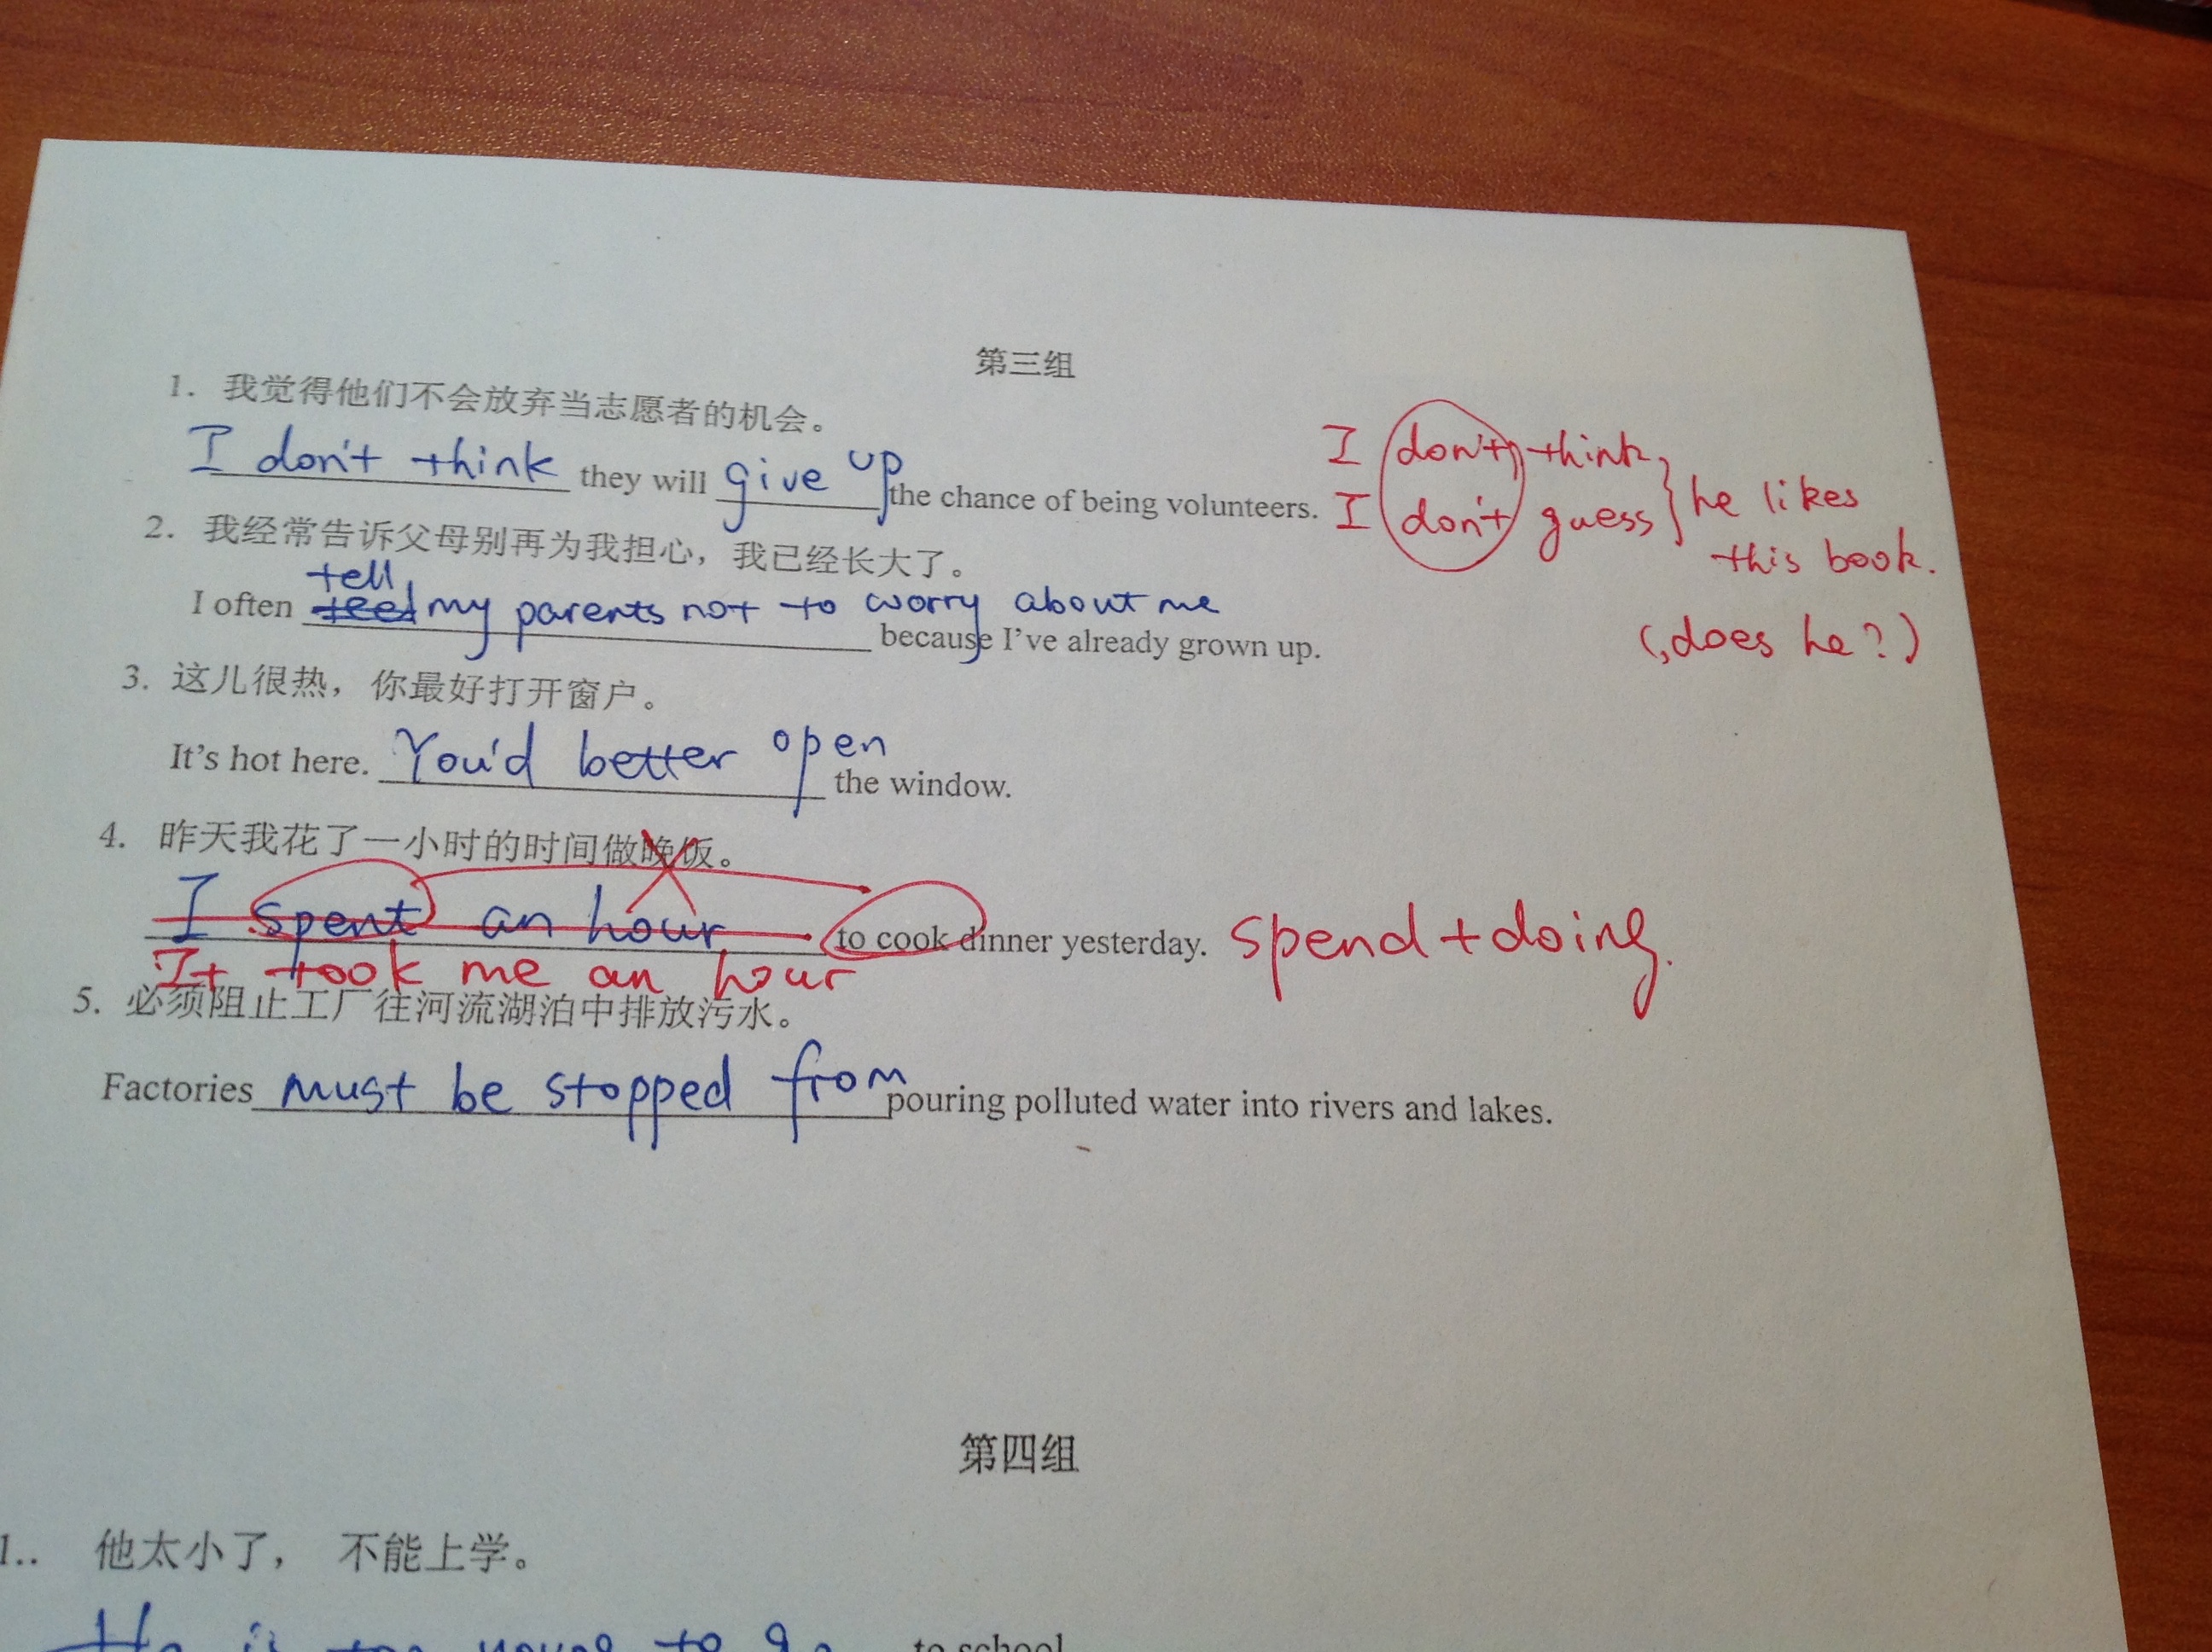 第三组
1. 我觉得他们不会放弃当志愿者的机会。
I don't think they will give up the chance of being volunteers.
I don't think
I don't guess
he likes
this book.
(, does he?)
2. 我经常告诉父母别再为我担心，我已经长大了。
tell
I often my parents not to worry about me because I've already grown up.
3. 这儿很热，你最好打开窗户。
It's hot here. You'd better open the window.
4. 昨天我花了一小时的时间做晚饭。
I spent an hour to cook dinner yesterday. spend+doing.
It took me an hour
5. 必须阻止工厂往河流湖泊中排放污水。
Factories must be stopped from pouring polluted water into rivers and lakes.
第四组
1.. 他太小了， 不能上学。
He is too young to go to school